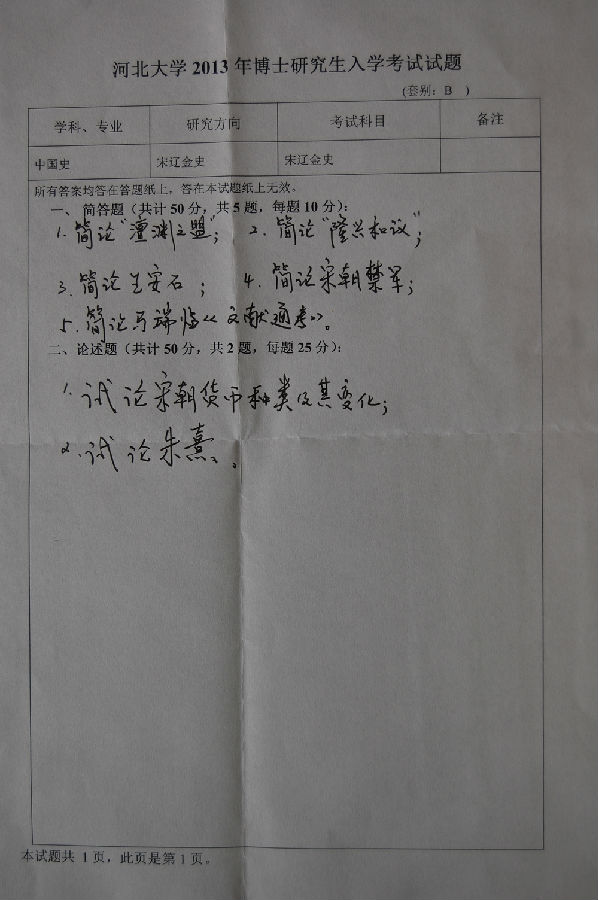 河北大学 2013 年博士研究生入学考试试题
(套别：B )
学科、专业 研究方向 考试科目 备注
中国史 宋辽金史 宋辽金史
所有答案均答在答题纸上，答在本试题纸上无效。
一、 简答题（共计 50 分，共 5 题，每题 10 分）：
1. 简论“澶渊之盟”； 2. 简论“隆兴和议”；
3. 简论王安石； 4. 简论宋朝禁军；
5. 简论马端临《文献通考》。
二、论述题（共计 50 分，共 2 题，每题 25 分）：
1. 试论宋朝货币种类及其变化；
2. 试论朱熹。
本试题共 1 页，此页是第 1 页。